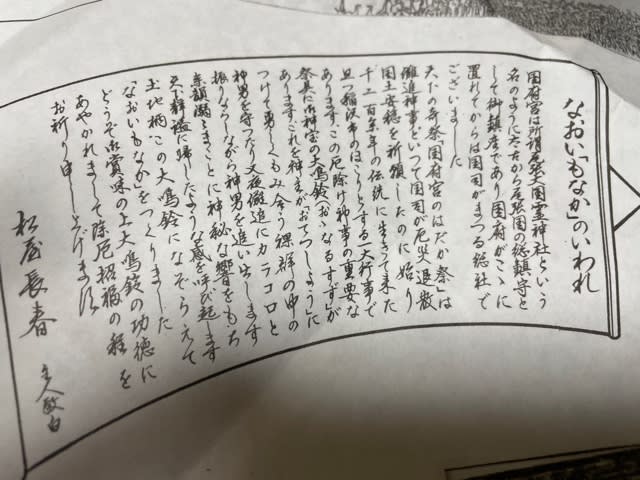 なおい「もなか」のいわれ
国府宮は所謂尾張大国霊神社という
名のように太古から尾張国の総鎮守と
して御鎮座であり国府がこゝに
置れてからは国司がまつる総社で
ございました
天下の奇祭「国府宮のはだか祭」は
儺追神事といつて国司が厄災退散
国土安穏を祈願したのに始り
千二百余年の伝統に生きて来た
且つ稲沢市のほこりとする一大行事で
あります。この厄除け神事の重要な
祭具に御神宝の大鳴鈴(おゝなるすず)が
あります これを神主が「おてつしよう」に
つけて勇しくもみ合う裸群の中の
神男を守つたり又夜儺追にカラコロと
振りならしながら神男を追い出します
余韻 まことに神秘な響をもち
天下静謐に帰したような感を呼び起します
土地柄この大鳴鈴になぞらえて
「なおいもなか」をつくりました
どうぞ御賞味の上大鳴鈴の功徳に
あやかれまして除厄招福の程を
お祈り申し上げます
松屋長春
主人敬白